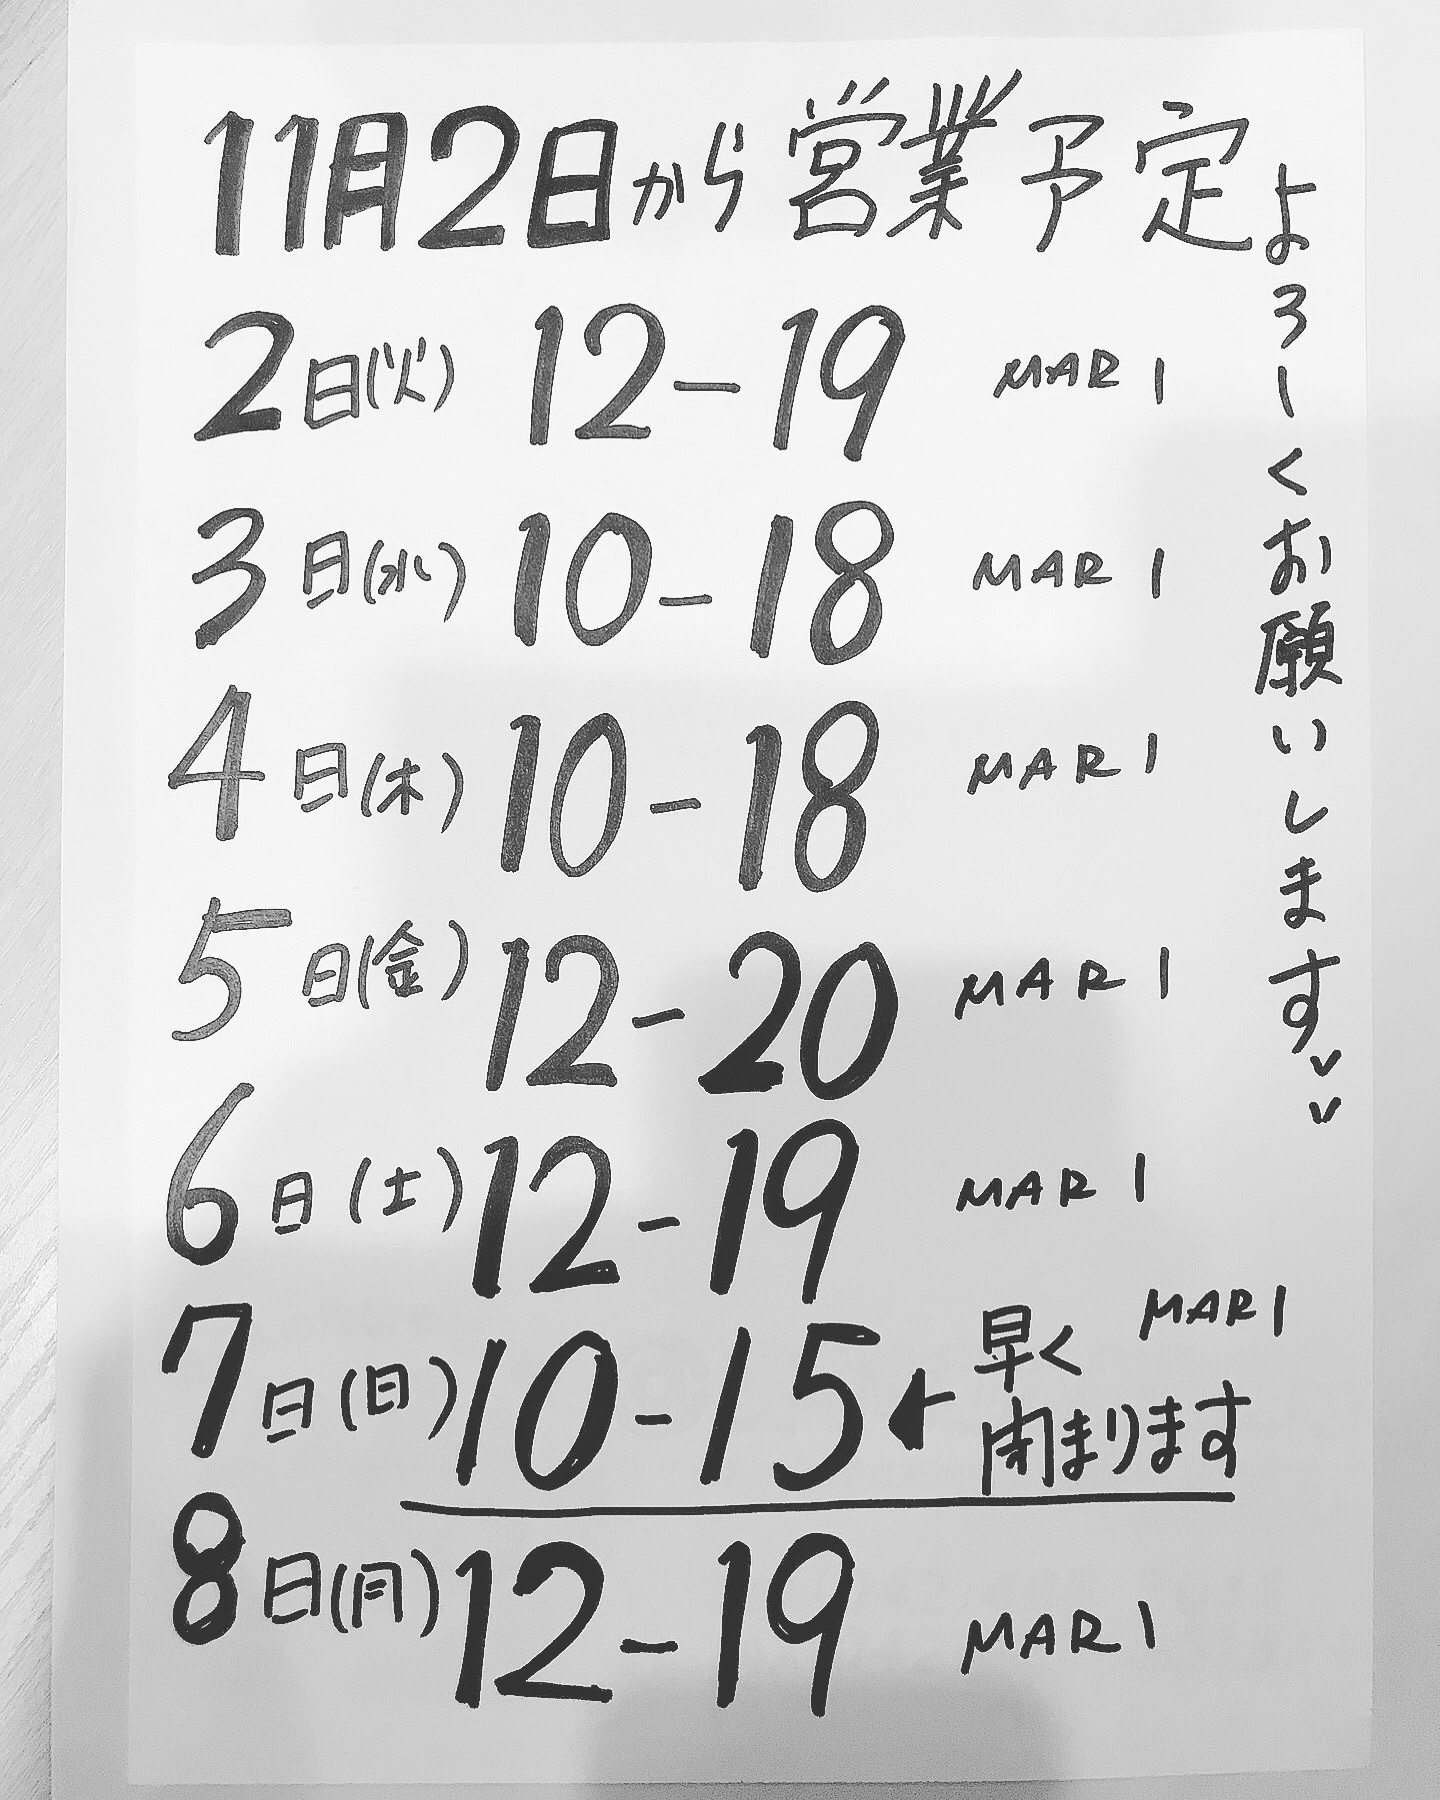 11月2日から営業予定
2日(火) 12-19 MARI
3日(水) 10-18 MARI
4日(木) 10-18 MARI
5日(金) 12-20 MARI
6日(土) 12-19 MARI
7日(日) 10-15 早く MARI
閉まります
8日(月) 12-19 MARI
よろしくお願いします